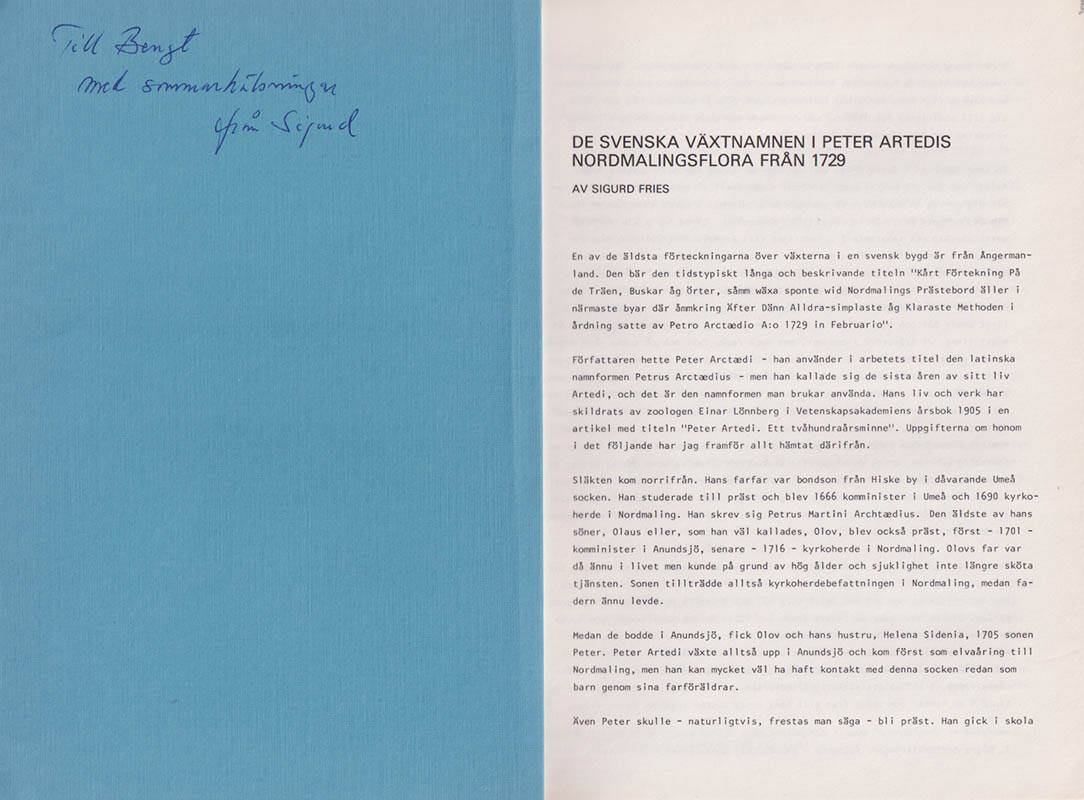 Till Bengt
med sommarhälsningar
från Sigurd
DE SVENSKA VÄXTNAMNEN I PETER ARTEDIS
NORDMALINGSFLORA FRÅN 1729
AV SIGURD FRIES
En av de äldsta förteckningarna över växterna i en svensk bygd är från Ångerman-
land. Den bär den tidstypiskt långa och beskrivande titeln "Kårt Förtekning På
de Träen, Buskar åg Örter, såmm wäxa sponte wid Nordmalings Prästebord äller i
närmaste byar där åmmkring Äfter Dänn Alldra-simplaste åg Klaraste Methoden i
årdning satte av Petro Arctædio A:o 1729 in Februario".
Författaren hette Peter Arctædi - han använder i arbetets titel den latinska
namnformen Petrus Arctædius - men han kallade sig de sista åren av sitt liv
Artedi, och det är den namnformen man brukar använda. Hans liv och verk har
skildrats av zoologen Einar Lönnberg i Vetenskapsakademiens årsbok 1905 i en
artikel med titeln "Peter Artedi. Ett tvåhundraårsminne". Uppgifterna om honom
i det följande har jag framför allt hämtat därifrån.
Släkten kom norrifrån. Hans farfar var bondson från Hiske by i dåvarande Umeå
socken. Han studerade till präst och blev 1666 komminister i Umeå och 1690 kyrko-
herde i Nordmaling. Han skrev sig Petrus Martini Archtædius. Den äldste av hans
söner, Olaus eller, som han väl kallades, Olov, blev också präst, först - 1701 -
komminister i Anundsjö, senare - 1716 - kyrkoherde i Nordmaling. Olovs far var
då ännu i livet men kunde på grund av hög ålder och sjuklighet inte längre sköta
tjänsten. Sonen tillträdde alltså kyrkoherdebefattningen i Nordmaling, medan fa-
dern ännu levde.
Medan de bodde i Anundsjö, fick Olov och hans hustru, Helena Sidenia, 1705 sonen
Peter. Peter Artedi växte alltså upp i Anundsjö och kom först som elvaåring till
Nordmaling, men han kan mycket väl ha haft kontakt med denna socken redan som
barn genom sina farföräldrar.
Även Peter skulle - naturligtvis, frestas man säga - bli präst. Han gick i skola